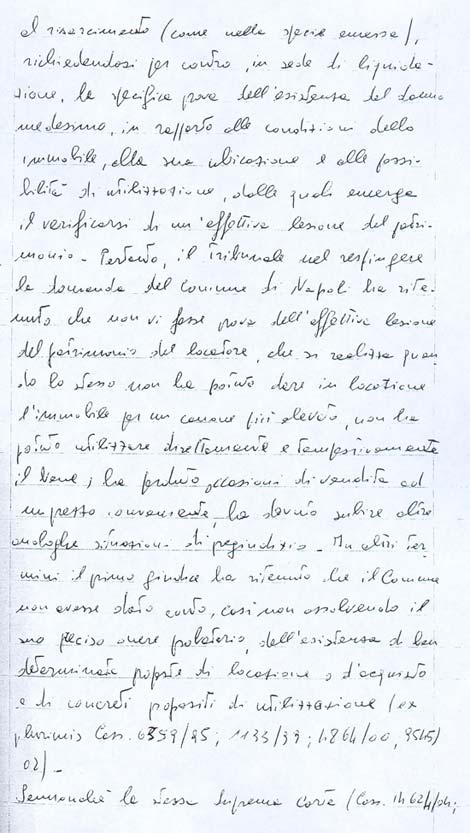 al risarcimento (come nella specie emessa),
richiedendosi per contro, in sede di liquida-
zione, la specifica prova dell'esistenza del danno
medesimo, in rapporto alle condizioni dello
immobile, alla sua ubicazione e alle possi-
bilità di utilizzazione, dalle quali emerga
il verificarsi di un'effettiva lesione del patri-
monio. Pertanto, il Tribunale nel respingere
la domanda del Comune di Napoli ha rite-
nuto che non vi fosse prova dell'effettiva lesione
del patrimonio del locatore, che si realizza quan
do lo stesso non ha potuto dare in locazione
l'immobile per un canone più elevato, non ha
potuto utilizzare direttamente e tempestivamente
il bene, ha perduto occasioni di vendita ad
un prezzo conveniente, ha dovuto subire altre
analoghe situazioni di pregiudizio. In altri ter
mini il primo giudice ha ritenuto che il Comune
non avesse dato conto, così non assolvendo il
suo preciso onere probatorio, dell'esistenza di ben
determinate proposte di locazione o d'acquisto
e di concreti propositi di utilizzazione (ex
plurimis Cass. 6359/95; 1133/99; 4864/00, 9545/
02).
Sennonché la stessa Suprema Corte (Cass.